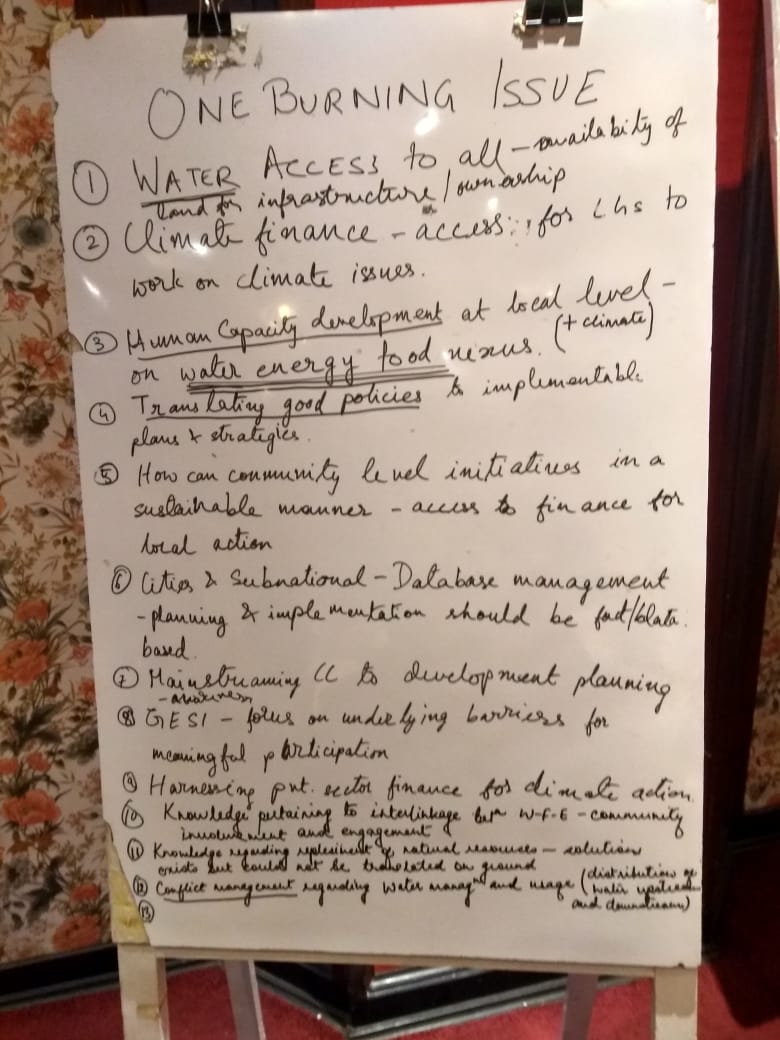 ONE BURNING ISSUE
① WATER ACCESS to all – availability of
land for infrastructure / ownership
② Climate finance – access for LGs to
work on climate issues.
③ Human Capacity development at local level –
on water energy food nexus. (+ climate)
④ Translating good policies to implementable
plans & strategies.
⑤ How can community level initiatives in a
sustainable manner – access to finance for
local action
⑥ Cities & Subnational – Database management
- planning & implementation should be fact/data
based.
⑦ Mainstreaming CC to development planning
- awareness
⑧ GESI – focus on underlying barriers for
meaningful participation
⑨ Harnessing pvt. sector finance for climate action
⑩ Knowledge pertaining to interlinkage betn W-F-E – community
involvement and engagement
⑪ Knowledge regarding of natural resources – solution
exists but could not be translated on ground
⑫ Conflict management regarding water managt and usage (distribution of
water upstream
and downstream)
⑬